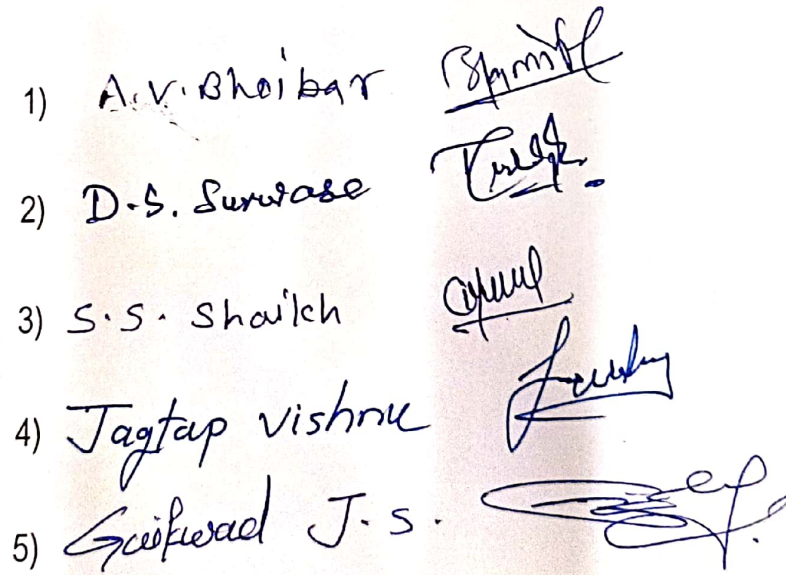 1) A.V. Bhoibar
2) D.S. Surwase
3) S.S. Shaikh
4) Jagtap Vishnu
5) Gaikwad J.S.